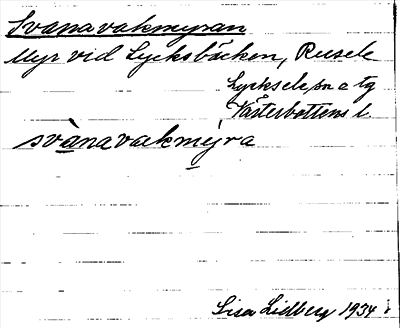 Svanavakmyran
Myr vid Lycksbäcken, Rusele
Lycksele sn o tg
Västerbottens l
svànavakmýra
Lisa Lidberg 1934